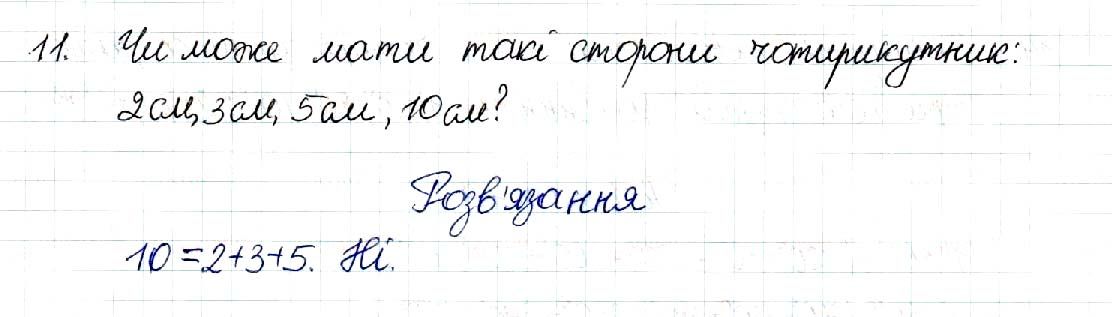 11. Чи може мати такі сторони чотирикутник:
2см, 3см, 5см, 10см?
Розв'язання
10=2+3+5. Ні.